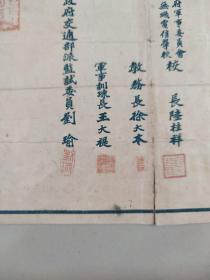 府軍事委員會
無線電信學校
校長陸桂祥
教務長徐大本
軍事訓練長王大褆
政府交通部派監試委員劉瑜